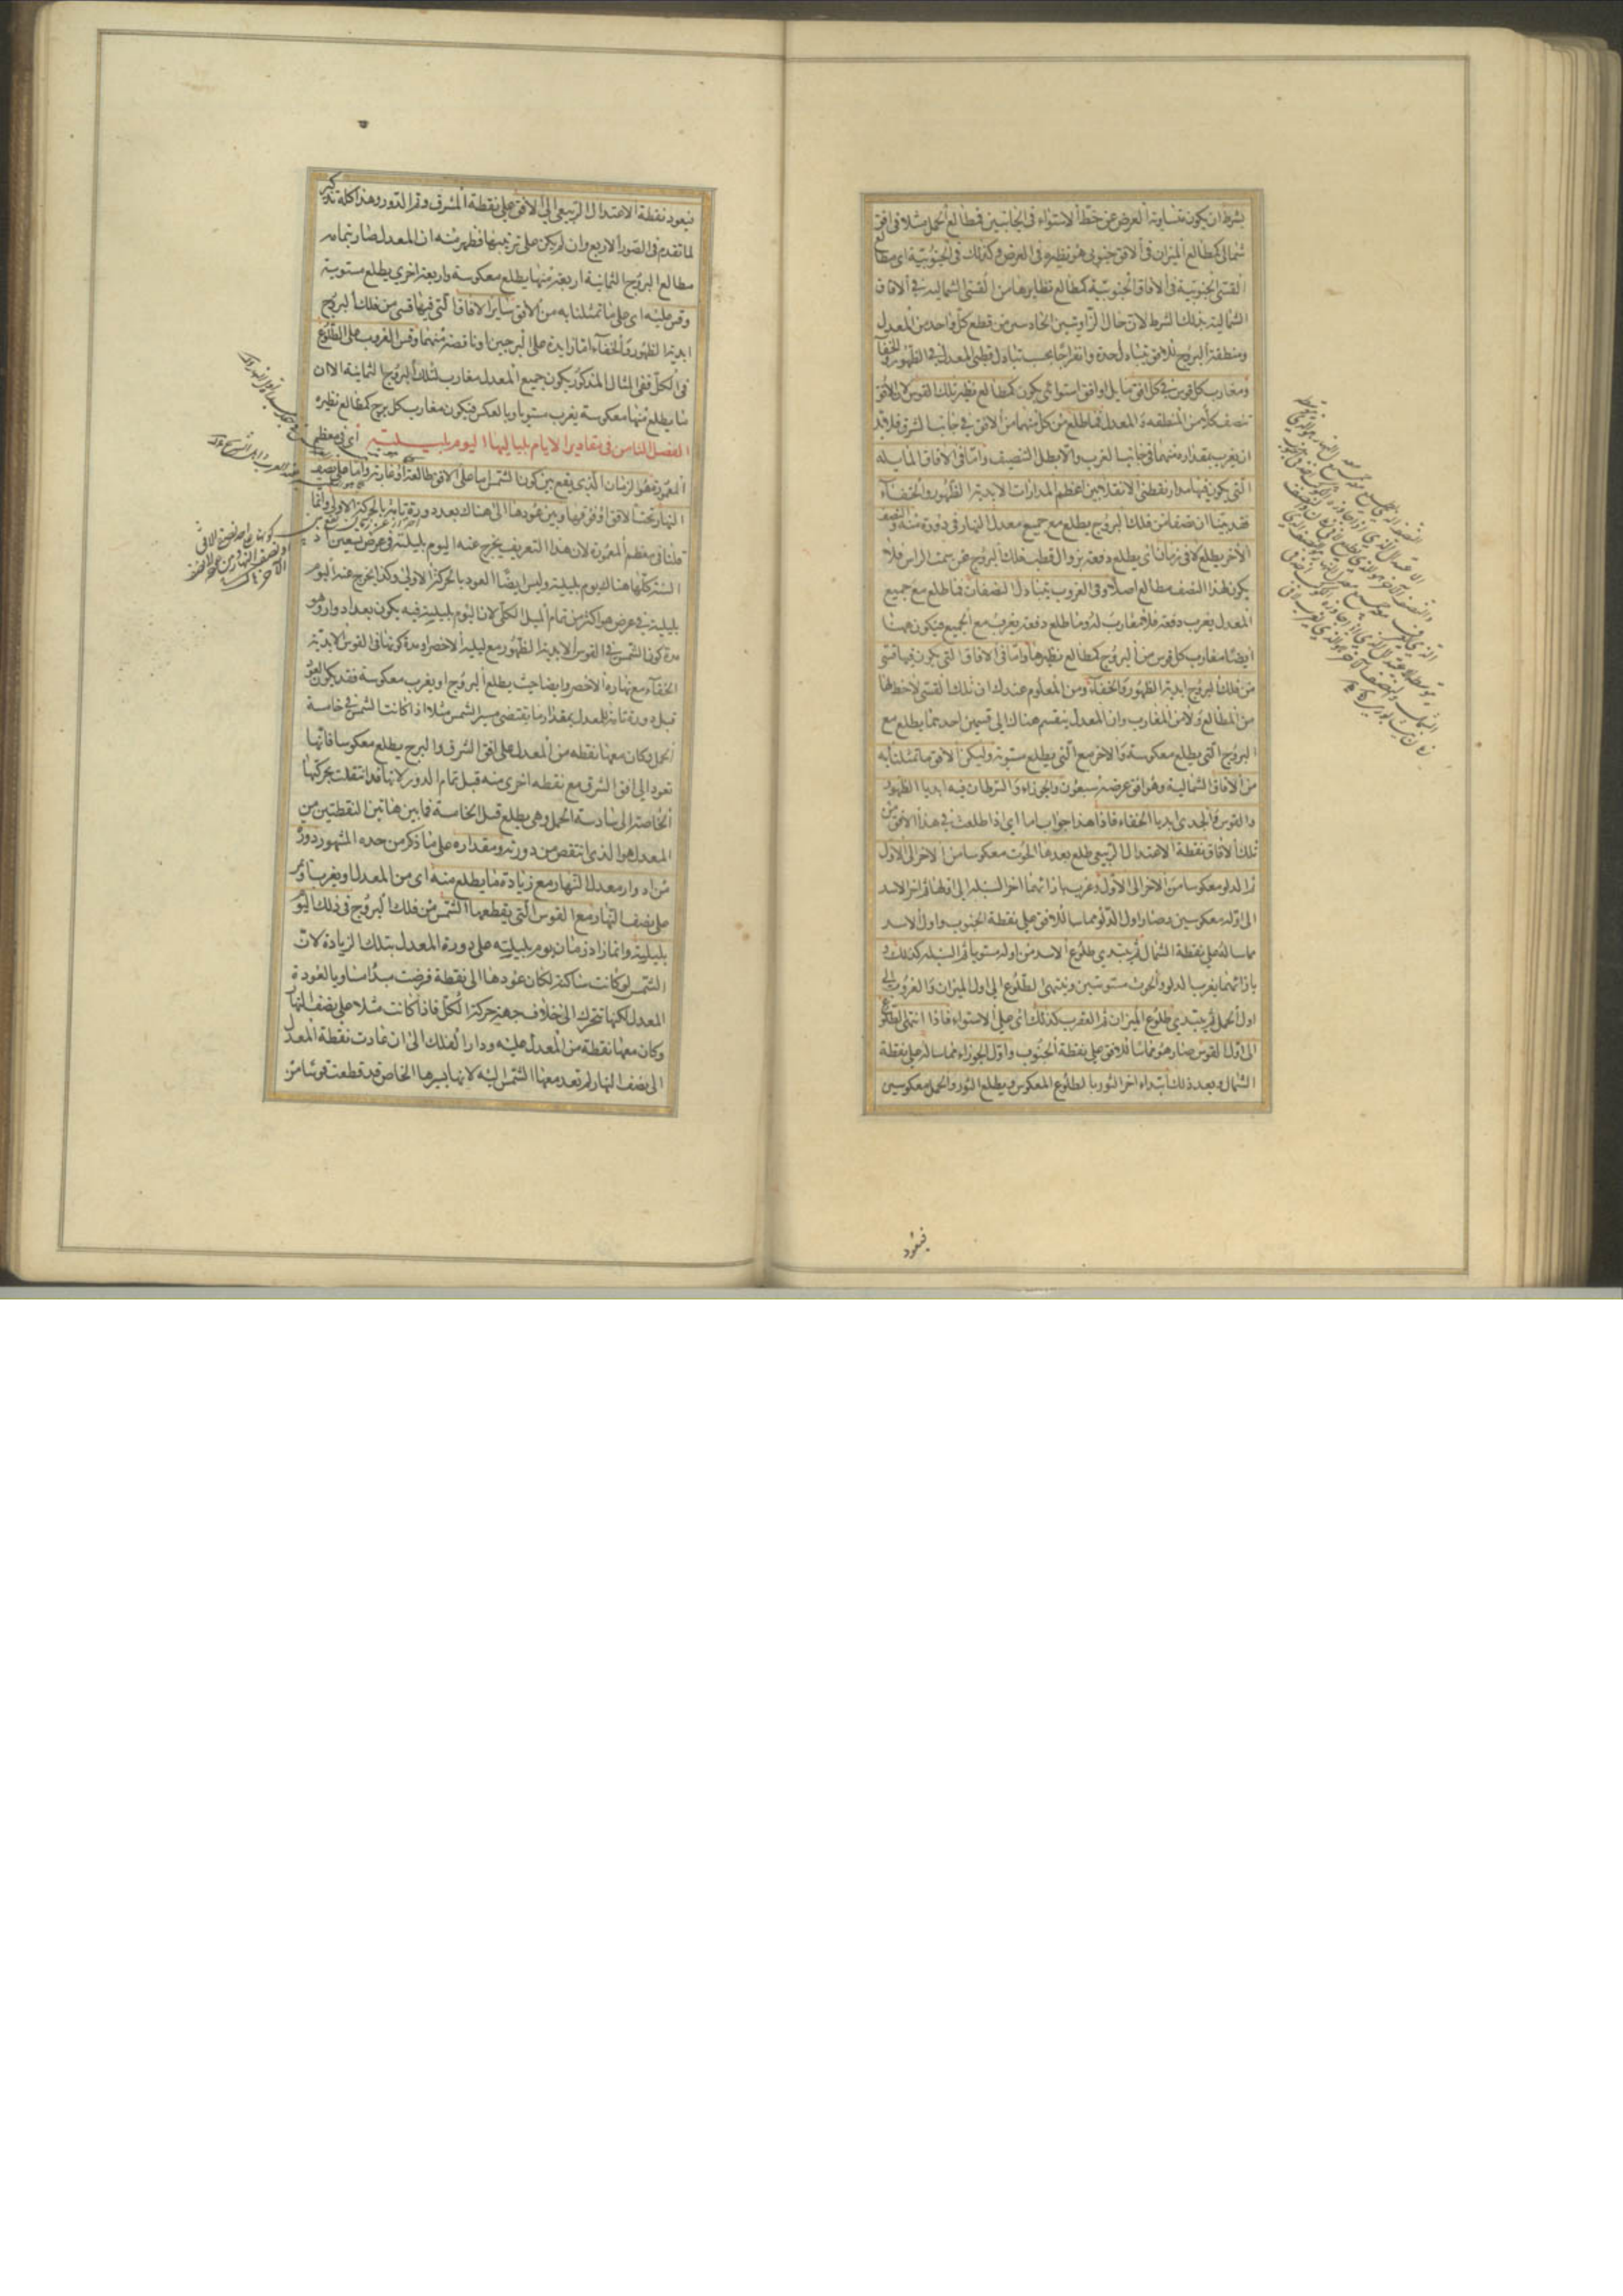 بشرط ان يكون متساوية العرض عن خط الاستواء فى الجانبين فمطالع الحمل مثلا فى افق
شمالى كمطالع الميزان فى الافق جنوبى هو نظيره فى العرض وكذلك فى الجنوبية اى مطالع
القسى الجنوبية فى الافاق الجنوبية كمطالع نظايرها من القسى الشمالية فى الافاق
الشمالية بذلك الشرط لان حال الزاويتين الحادتين من قطع كل واحد من المعدل
ومنطقة البروج للافق يتبادل حدة وانفراجا بحسب تبادل قطبى المعدل فى الظهور والخفا
ومغارب كل قوس فى كل افق مايل او افق استوائى يكون كمطالع نظير تلك القوس لان الافق
تنصف كلا من المنطقه و المعدل فما طلع من كل منهما من الافق فى جانب الشرق فلا بد
ان يغرب بمقداره منهما فى جانب الغرب والا بطل التنصيف واما فى الافاق المايلة
التى يكون فيها مدار نقطتى الانقلابين اعظم المدارات الابدية الظهور والخفاء
فقد بينا ان نصفا من فلك البروج يطلع مع جميع معدل النهار فى دورة منه والنصف
الاخر يطلع لا فى زمان اى يطلع دفعة بزوال قطب فلك البروج عن سمت الراس فلا
يكون لهذا النصف مطالع اصلا وفى الغروب يتبادل النصفان فما طلع مع جميع
المعدل يغرب دفعة فلا مغارب له وما طلع دفعة يغرب مع الجميع فيكون ههنا
ايضا مغارب كل قوس من البروج كمطالع نظيرها واما فى الافاق التى يكون فيها قسى
من فلك البروج ابدية الظهور والخفاء ومن المعلوم عندك ان تلك القسى لا حظ لها
من المطالع ولا من المغارب وان المعدل ينقسم هنالك الى قسمين احدهما يطلع مع
البروج التى يطلع معكوسة والاخر مع التى يطلع مستوية وليكن الافق ما تمثلنا به
من الافاق الشمالية وهو افق عرضه سبعون والجوزاء والسرطان فيه ابديا الظهور
والقوس والجدى ابديا الخفاء فاذا هذا جواب اما اى اذا طلعت فى هذا الافق من
تلك الافاق نقطة الاعتدال الربيعى طلع بعدها الحوت معكوسا من الاخر الى الاول
ثم الدلو معكوسا من الاخر الى الاول وغرب بازائهما اخر السنبله الى اولها ثم اخر الاسد
الى اوله معكوسين وصار اول الدلو مماسا للافق على نقطة الجنوب واول الاسد
مماسا له على نقطة الشمال ثم يبتدى طلوع الاسد من اوله مستويا ثم السنبله كذلك و
بازائهما يغرب الدلو والحوت مستويتين وينتهى الطلوع الى اول الميزان والغروب الى
اول الحمل ثم يبتدى طلوع الميزان ثم العقرب كذلك اى على الاستواء فاذا انتهى الطلوع
الى اول القوس صار هو مماسا للافق على نقطة الجنوب واول الجوزاء مماسا له على نقطة
الشمال وبعد ذلك ابتداء اخر الثور بالطلوع المعكوس ويطلع الثور والحمل معكوسين
فيعود
فيعود نقطة الاعتدال الربيعى الى الافق على نقطة المشرق وتم الدور وهذا كله تذكير
لما تقدم فى الصور الاربع وان لم يكن على ترتيبها فظهر منه ان المعدل صار بتمامه
مطالع البروج الثمانية اربعة منها يطلع معكوسة واربعة اخرى يطلع مستوية
وقس عليه اى على ما تمثلنا به من الافق ساير الافاق التى فيها قسى من فلك البروج
ابدية الظهور والخفاء اما زايدة على البرجين او ناقصة منهما وقس الغروب على الطلوع
فى الكل ففى المثال المذكور يكون جميع المعدل مغارب لتلك البروج الثمانية الا ان
ما يطلع منها معكوسة يغرب مستويا وبالعكس فيكون مغارب كل برج كمطالع نظيره
الفصل الثامن فى مقادير الايام بلياليها اليوم بليلته اى فى معظم
المعمورة هو الزمان الذى يقع بين كون الشمس اما على الافق طالعة او غاربة واما على نصف
النهار تحت الافق او فوقها وبين عودها الى هناك بعد دورة تامة بالحركة الاولى وانما
قلنا فى معظم المعمورة لان هذا التعريف يخرج عنه اليوم بليلته فى عرض تسعين اذ
السنة كلها هناك يوم بليلته وليس ايضا العود بالحركة الاولى وكذا يخرج عنه اليوم
بليلته فى عرض هو اكثر من تمام الميل الكلى لان اليوم بليلته فيه يكون بعد ادوار وهو
مدة كون الشمس فى القوس الابدية الظهور مع ليله الاخصر او مدة كونها فى القوس الابدية
الخفاء مع نهاره الاخصر وايضا حيث يطلع البروج او يغرب معكوسة فقد يكون العود
قبل دورة تامة للمعدل بمقدار ما يقتضى مسير الشمس مثلا اذا كانت الشمس فى خامسة
الحمل وكان معها نقطه من المعدل على افق الشرق والبرج يطلع معكوسا فانها
تعود الى افق الشرق مع نقطه اخرى منه قبل تمام الدور لانها قد انتقلت بحركتها
الخاصة الى سادسة الحمل وهى يطلع قبل الخامسة فما بين هاتين النقطتين من
المعدل هو الذى انتقص من دورته ومقداره على ما ذكر من حده المشهور دورة
من ادوار معدل النهار مع زيادة ما يطلع منه اى من المعدل او يغرب او يمر
على نصف النهار مع القوس التى يقطعها الشمس من فلك البروج فى ذلك اليوم
بليلته وانما زاد زمان يوم بليلته على دورة المعدل بتلك الزيادة لان
الشمس لو كانت ساكنة لكان عودها الى نقطة فرضت مبدأ مساويا لعودة
المعدل لكنها تتحرك الى خلاف جهة حركة الكل فاذا كانت مثلا على نصف النهار
وكان معها نقطة من المعدل عليه ودار الفلك الى ان عادت نقطة المعدل
الى نصف النهار لم تعد معها الشمس اليه لانها بسيرها الخاص قد قطعت قوسا من